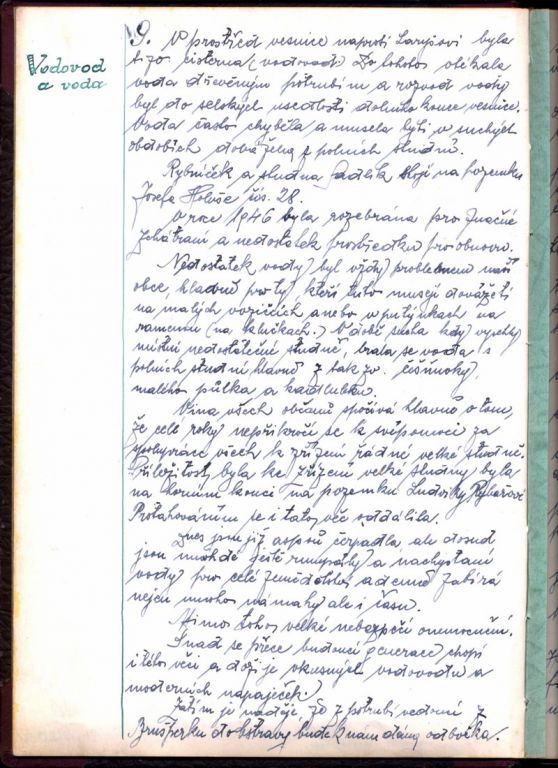 Vodovod
a voda
9. V prostřed vesnice naproti Laryšovi byla
t.zv. cisterna (vodovod). Do tohoto otékala
voda dřevěným potrubím a rozvod vody
byl do selských usedlostí dolního konce vesnice.
Voda často chyběla a musela býti v suchých
obdobích dovážena z polních studní.
Rybníček a studna stojí na pozemku
Josefa Holuše čís. 28.
V roce 1946 byla rozebrána pro značné
zchátrání a nedostatek prostředků pro obnovu.
Nedostatek vody byl vždy problémem naší
obce, hlavně pro ty, kteří tuto musejí dovážeti
na malých vozíčcích anebo v putýnkách na
ramenou (na klučkách). V době sucha kdy vyschly
místní nedostatečné studně, brala se voda s
polních studní hlavně z tak zv.
malého půlka a kadlubku.
Vina všech občanů spočívá hlavně v tom,
že celé roky nepřikročí se k svépomoci za
spolupráce všech k zřízení řádné velké studně.
Příležitost byla ke zřízení velké studny byla
na horním konci na pozemku Ludvíky Rybářové
Protahováním se i tato věc oddálila.
Dnes jsou již aspoň čerpadla, ale dosud
jsou mnohde ještě rumpály a nachystání
vody pro celé zemědělství a denně zabírá
nejen mnoho námahy ale i času.
Mimo toho velké nebezpečí onemocnění.
Snad se přece budoucí generace chopí
i této věci a dožije vkusných vodovodů a
moderních napaječek.
Zatím je naděje, že z potrubí vedoucí z
Brušperku do Ostravy bude k nám dána odbočka.